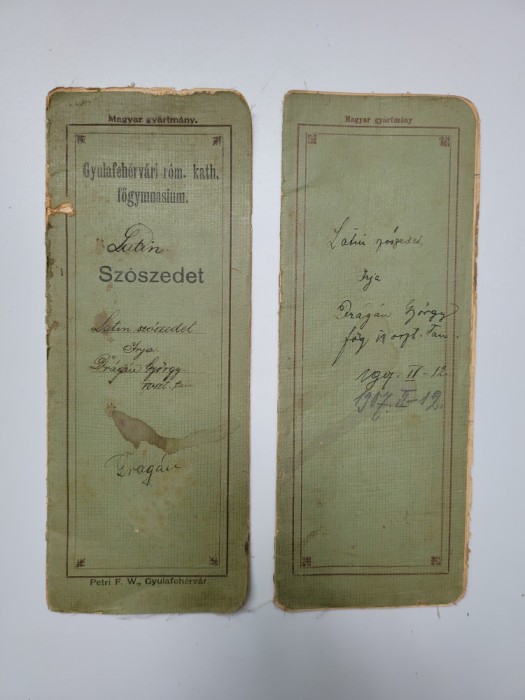 Magyar gyártmány.
Gyulafehérvári róm. kath.
főgymnasium.
Latin
Szószedet
Latin szószedet
Irja
Drágán György
oszt. tan
Drágán
Petri F. W., Gyulafehérvár.
Magyar gyártmány
Latin szószedet.
Irja
Drágán György
főg. oszt. tan.
1907. II-12.